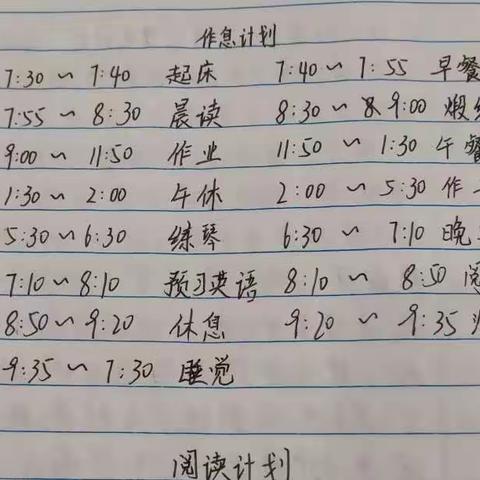 作息计划
7:30 ~ 7:40 起床 7:40 ~ 7:55 早餐
7:55 ~ 8:30 晨读 8:30 ~ 9:00 煅
9:00 ~ 11:50 作业 11:50 ~ 1:30 午餐
1:30 ~ 2:00 午休 2:00 ~ 5:30 作
5:30 ~ 6:30 练琴 6:30 ~ 7:10 晚
7:10 ~ 8:10 预习英语 8:10 ~ 8:50 阅
8:50 ~ 9:20 休息 9:20 ~ 9:35
9:35 ~ 7:30 睡觉
阅读计划